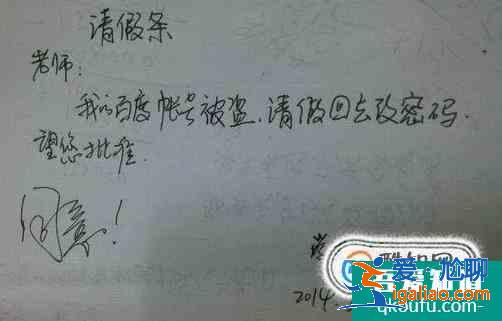 请假条
老师:
我的百度帐号被盗,请假回去改密码.
望您批准.
同意!
2014
爱尬聊
igaliao.com
qk5ufu.com